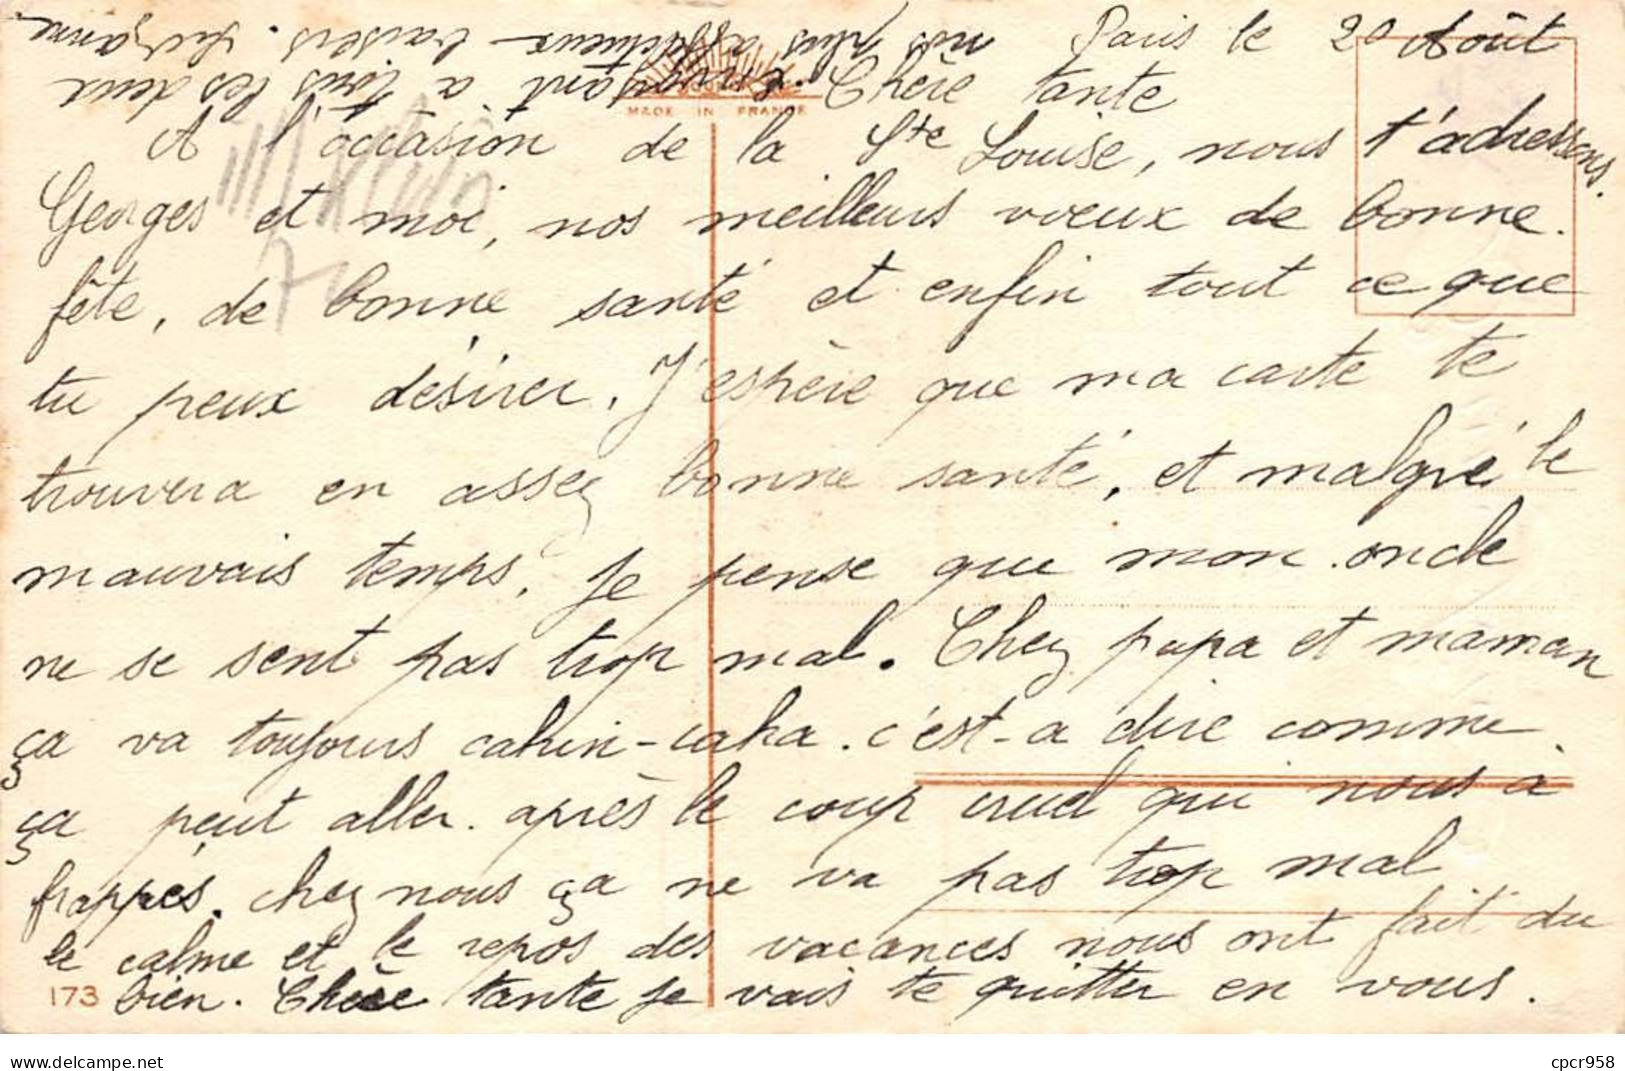 Paris le 20 Août
Chère tante
A l'occasion de la Ste Louise, nous t'adressons,
Georges et moi, nos meilleurs voeux de bonne
fête, de bonne santé et enfin tout ce que
tu peux désirer. J'espère que ma carte te
trouvera en assez bonne santé, et malgré le
mauvais temps, je pense que mon oncle
ne se sent pas trop mal. Chez papa et maman
ça va toujours cahin-caha. c'est-a dire comme
ça peut aller. après le coup cruel qui nous à
frappés. chez nous ça ne va pas trop mal
le calme et le repos des vacances nous ont fait du
bien. Chère tante je vais te quitter en vous
envoyant à tous les deux
nos plus affectueux baisers. Suzanne
MADE IN FRANCE
173
https://www.delcampe.net
cpcr958